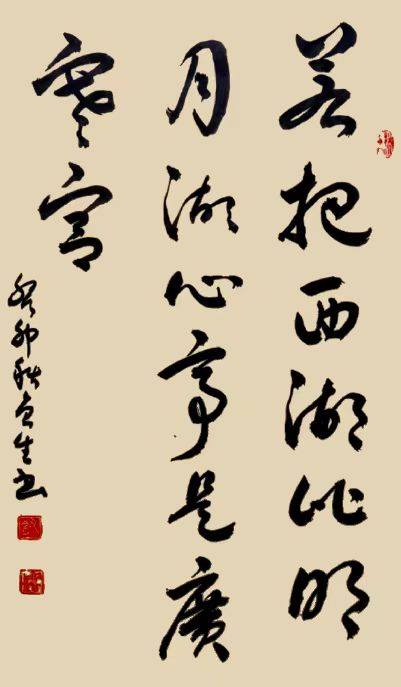 若把西湖比明
月湖心亭是廣
寒宮
癸卯秋
生书